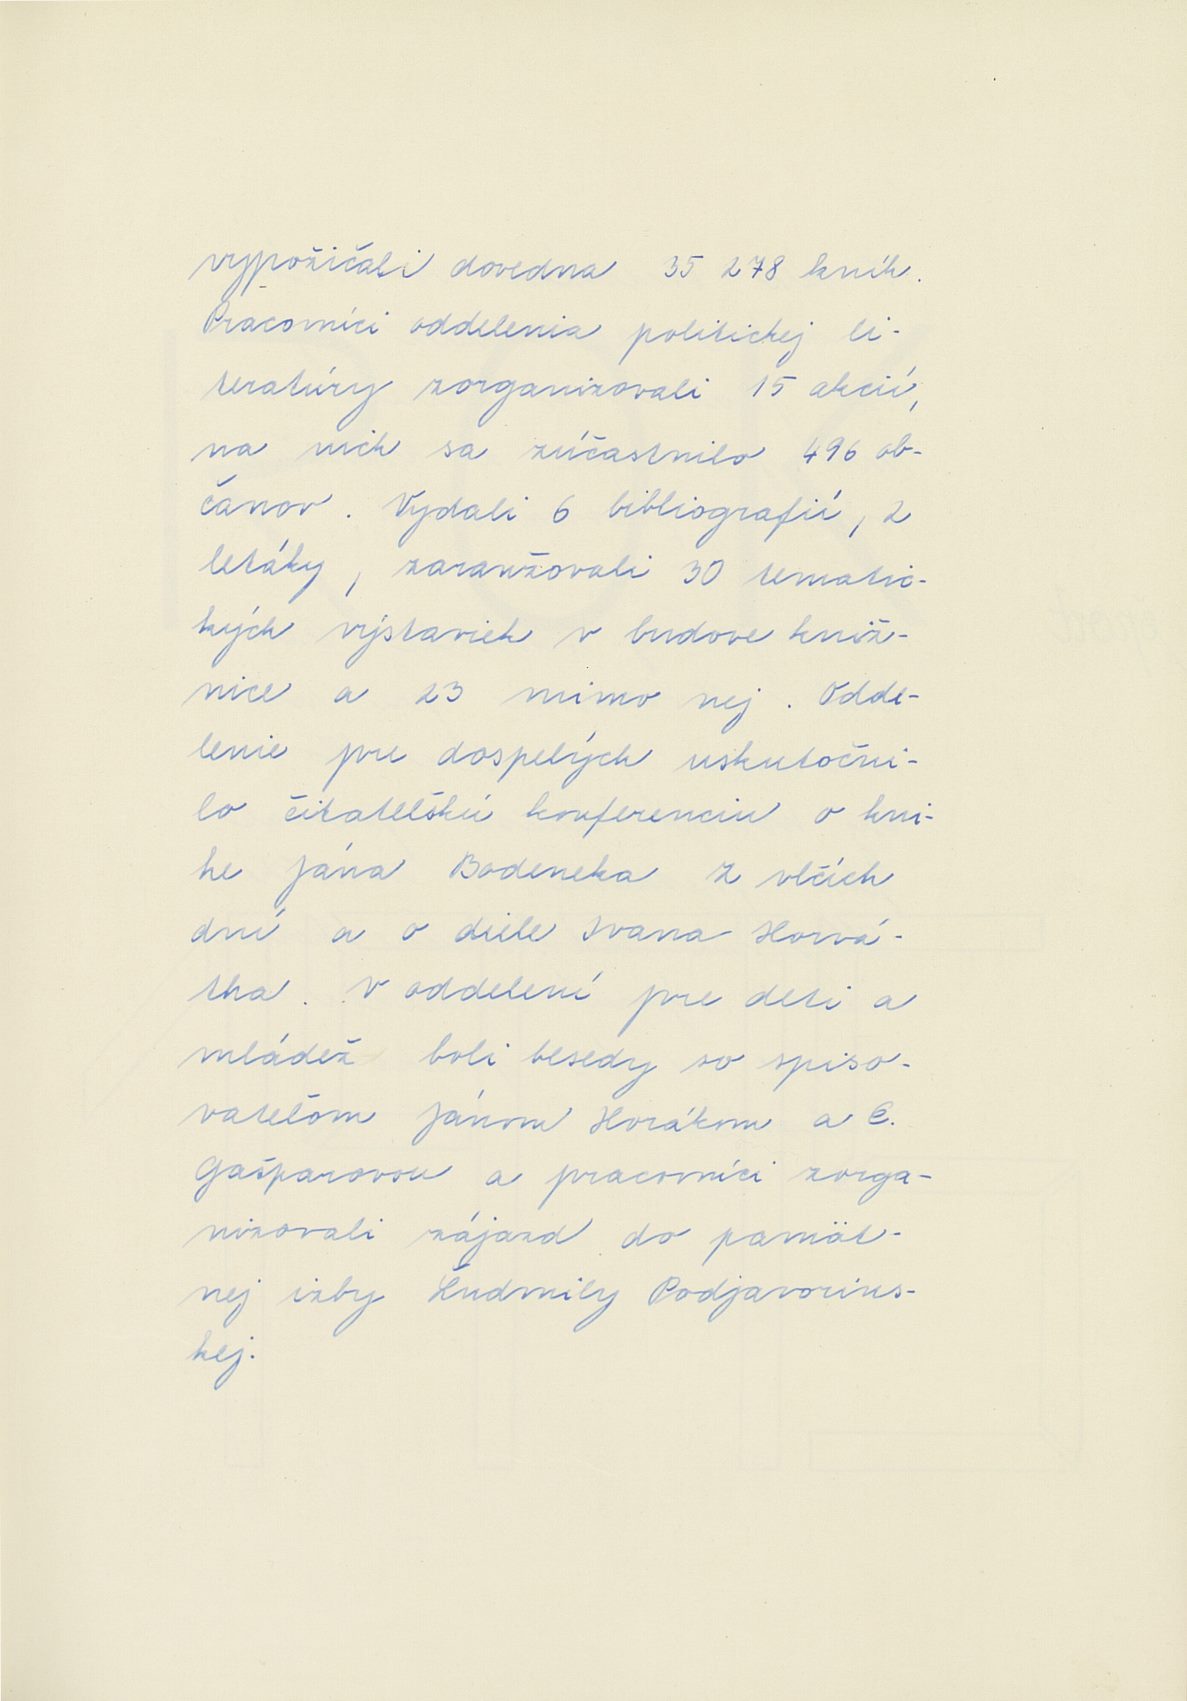 vypožičali dovedna 35 278 kníh.
Pracovníci oddelenia politickej li-
teratúry zorganizovali 15 akcií,
na nich sa zúčastnilo 496 ob-
čanov. Vydali 6 bibliografií, 2
letáky, zaranžovali 30 tematic-
kých výstaviek v budove kniž-
nice a 23 mimo nej. Odde-
lenie pre dospelých uskutočni-
lo čitateľskú konferenciu o kni-
he Jána Bodeneka Z vlčích
dní a o diele Ivana Horvá-
tha. V oddelení pre deti a
mládež boli besedy so spiso-
vateľom Jánom Horákom a E.
Gašparovou a pracovníci zorga-
nizovali zájazd do pamät-
nej izby Ľudmily Podjavorins-
kej.